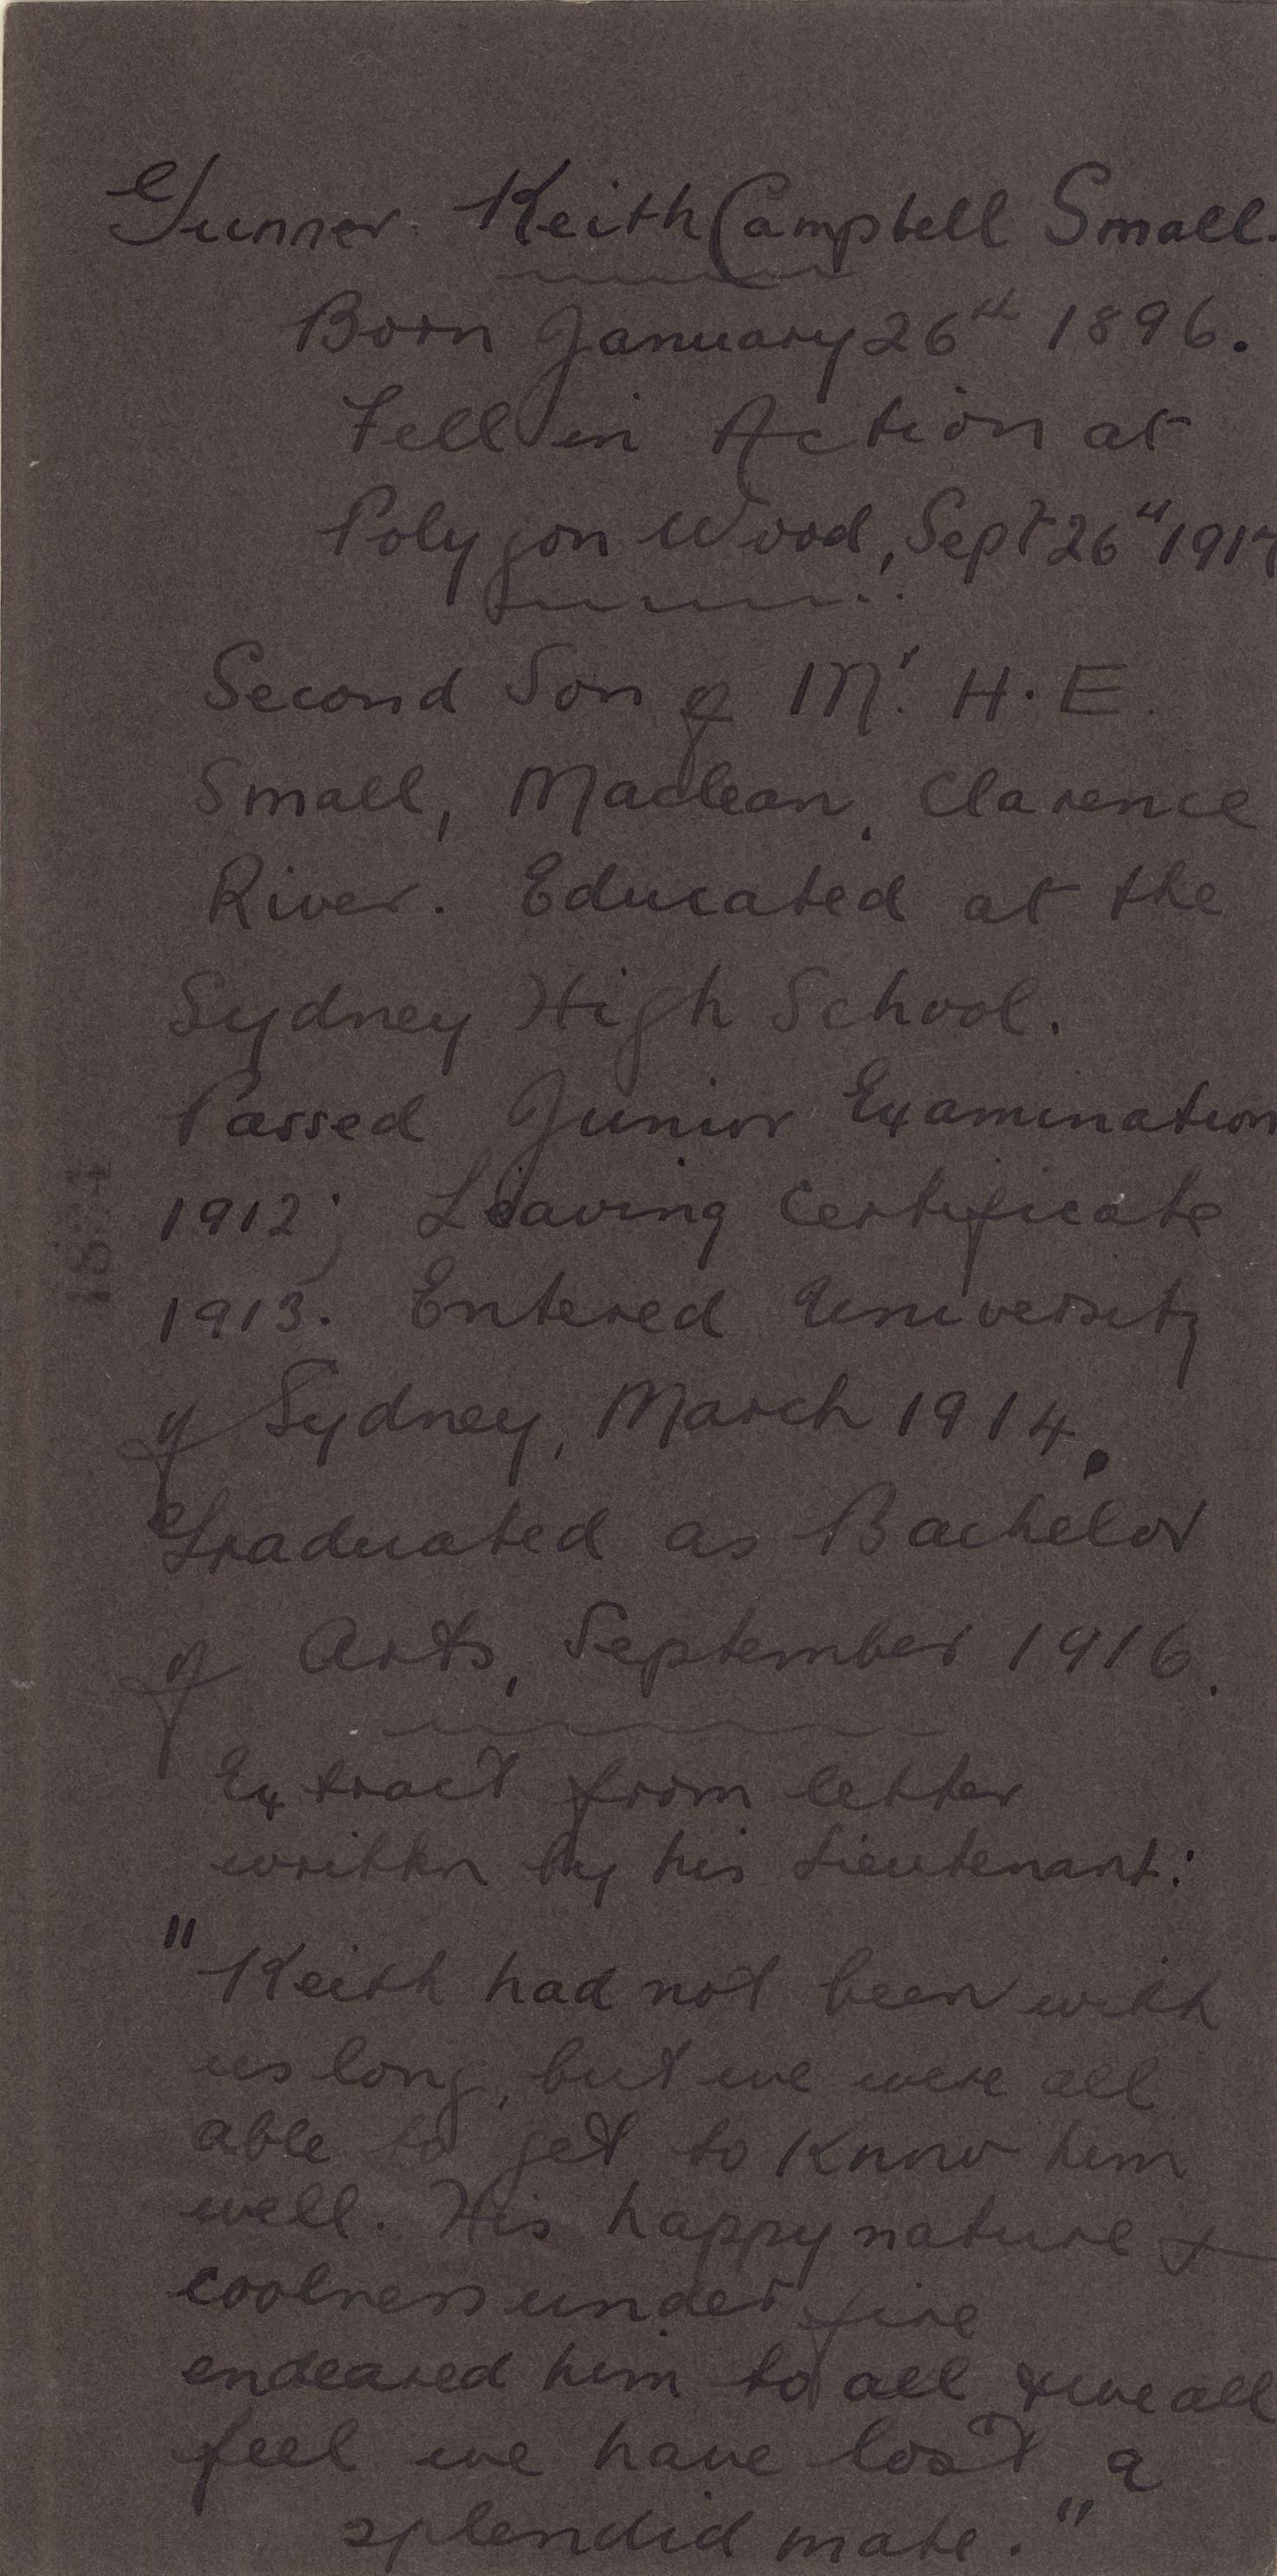 Gunner. Keith Campbell Small.
Born January 26th 1896.
Fell in Action at
Polygon Wood, Sept 26th 1917
Second Son of Mr. H. E.
Small, Maclean, Clarence
River. Educated at the
Sydney High School.
Passed Junior Examination
1912; Leaving Certificate
1913. Entered University
of Sydney, March 1914.
Graduated as Bachelor
of Arts, September 1916.
Extract from letter
written by his Lieutenant:
"Keith had not been with
us long, but we were all
able to get to know him
well. His happy nature &
coolness under fire
endeared him to all & we all
feel we have lost a
splendid mate."